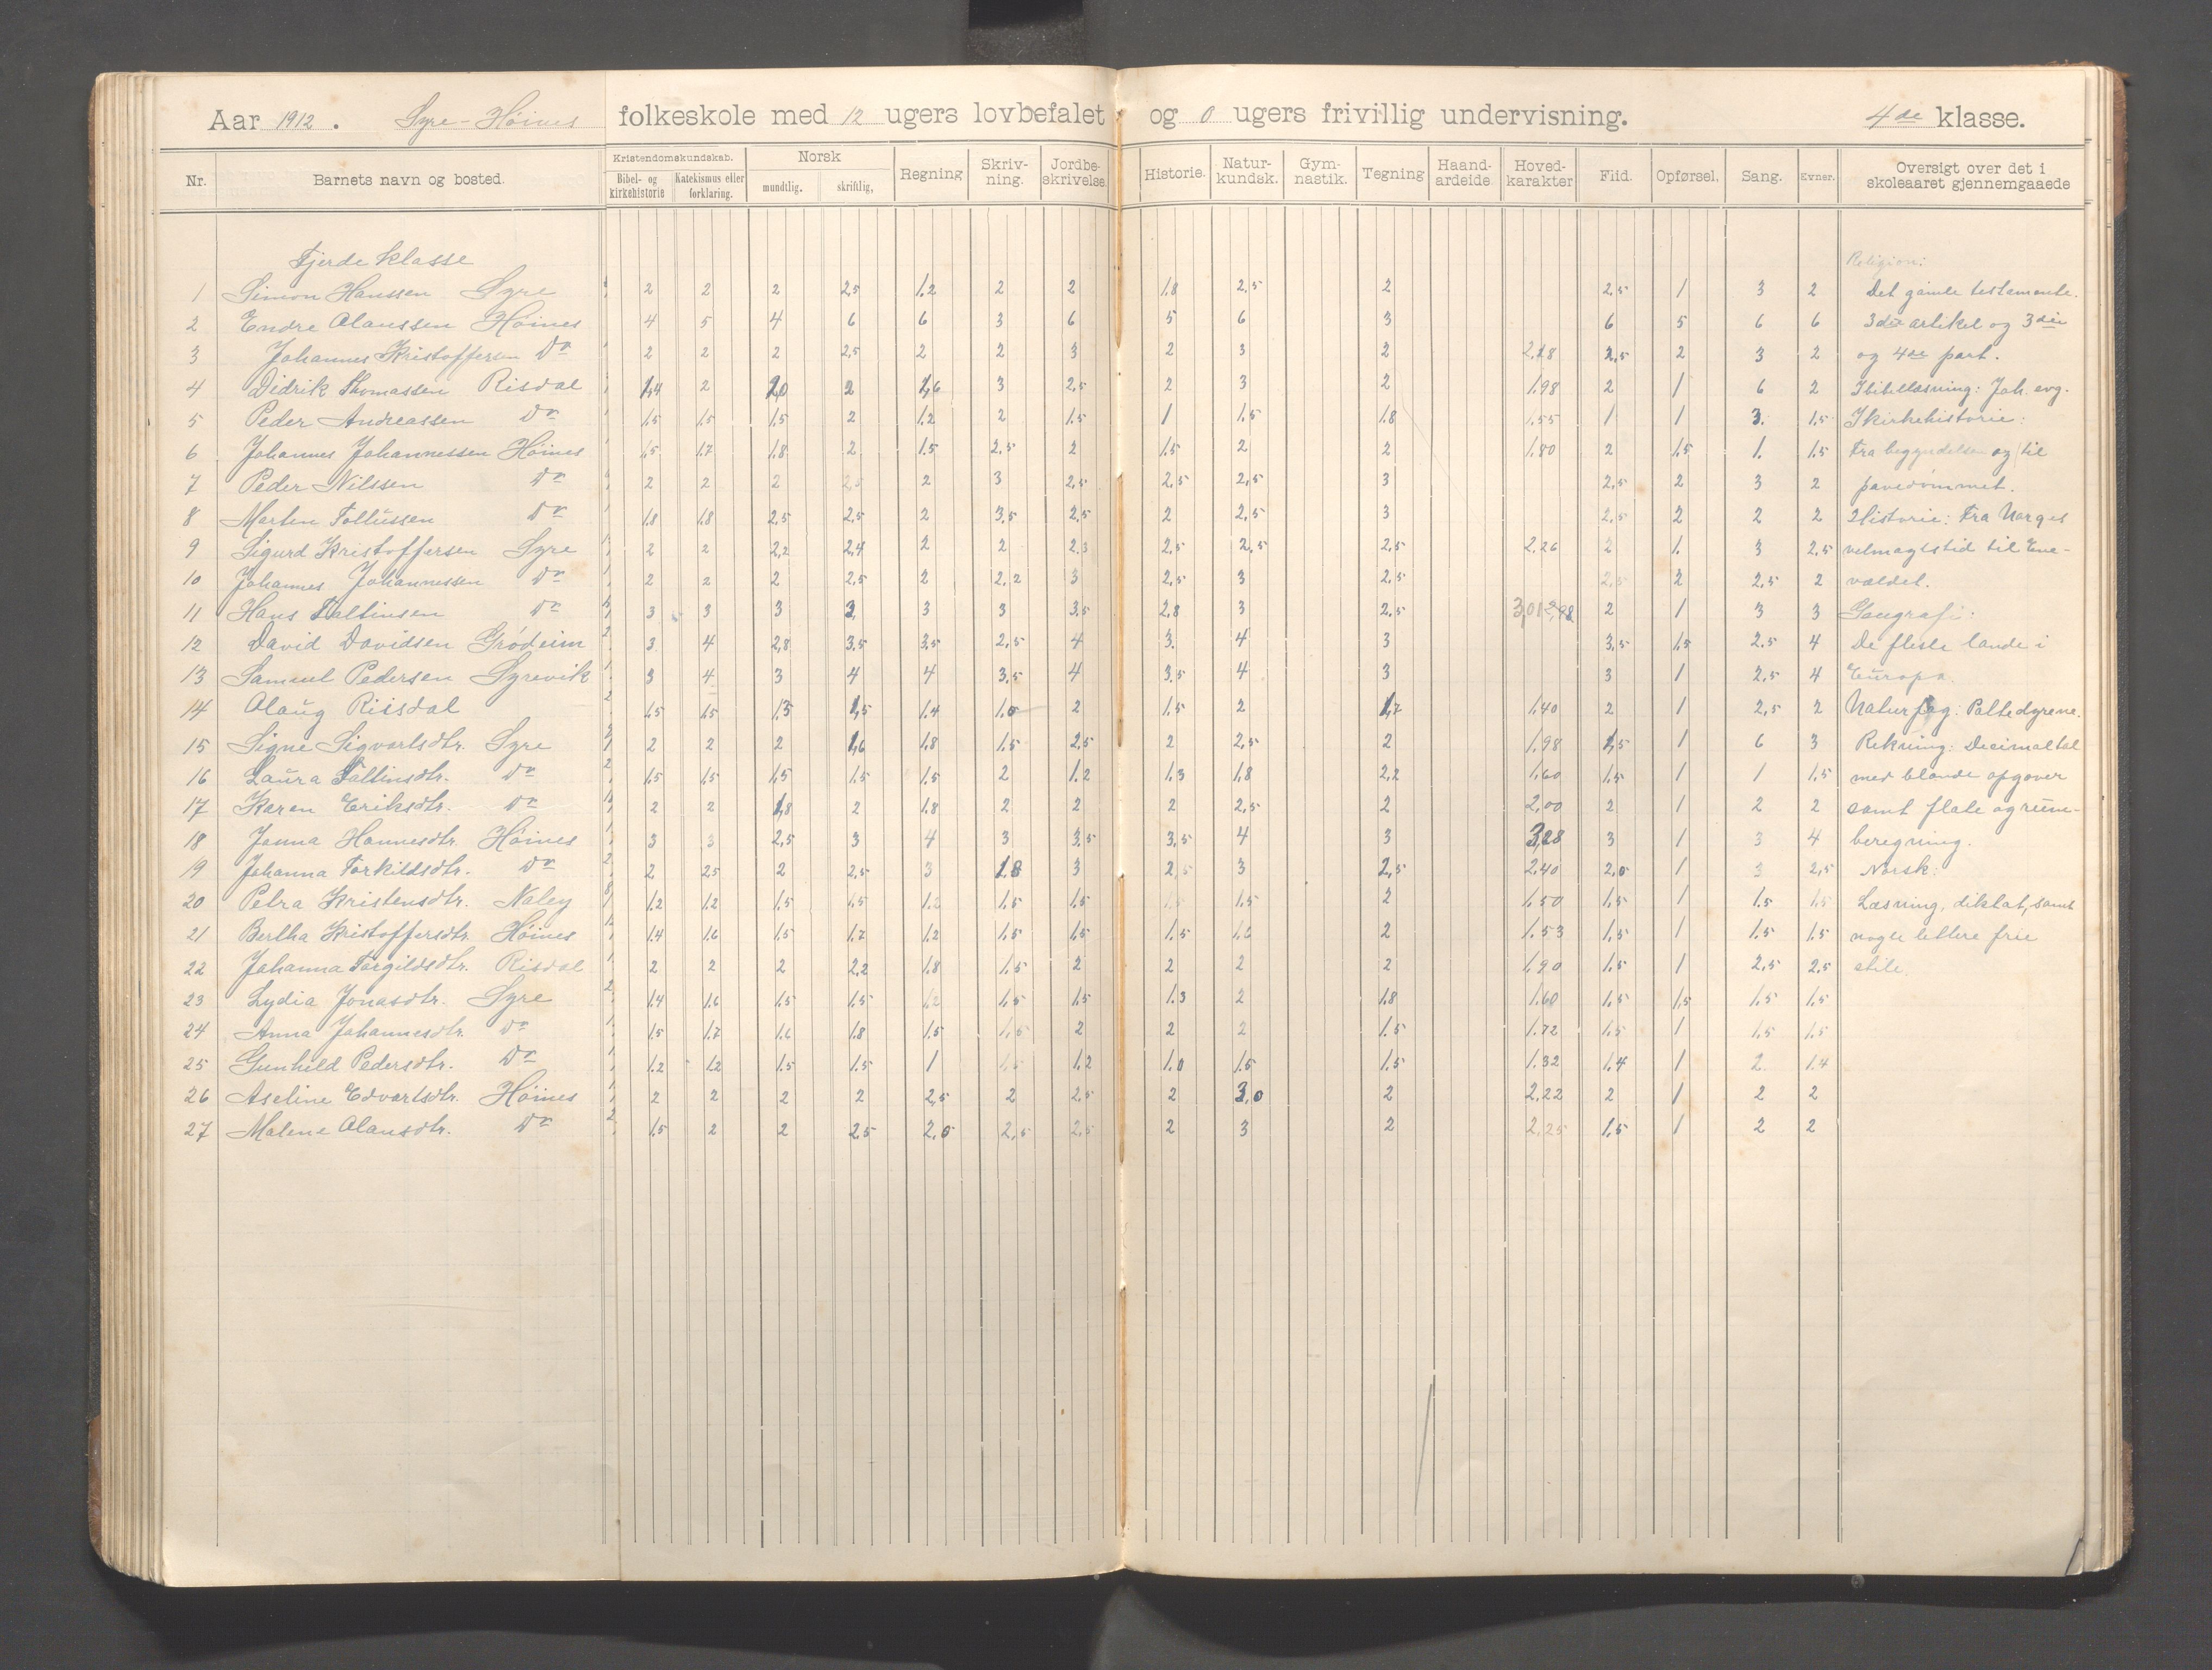 Aar 1912. Syre-Høines folkeskole med 12 ugers lovbefalet og 0 ugers frivillig undervisning. 4de klasse.
Nr. Barnets navn og bosted. Kristendomskundskab. Bibel- og kirkehistorie Katekismus eller forklaring. Norsk mundtlig. skriftlig, Regning Skriv-ning. Jordbe-skrivelse. Historie. Natur-kundsk. Gym-nastik. Tegning Haand-arbeide Hoved-karakter Flid. Opførsel. Sang. Evner. Oversigt over det i skoleaaret gjennemgaaede
Fjerde klasse Religion:
1 Simon Hanssen Syre 2 2 2 2,5 1.2 2 2 1.8 2,5 2 2,5 1 3 2 Det gamle testamente.
2 Endre Olaussen Høines 4 5 4 6 6 3 6 5 6 3 6 5 6 6 3die artikel og 3die
3 Johannes Kristoffersen Do 2 2 2 2,5 2 2 3 2 3 2 2,18 2,5 2 3 2 og 4de part.
4 Didrik Thomassen Risdal 1,4 2 2,0 2 1,6 3 2,5 2 3 2 1.98 2 1 6 2 I bibellæsning: Joh. evg.
5 Peder Andreassen Do 1.5 1.5 1.5 2 1.2 2 1.5 1 1.5 1.8 1.55 1 1 3. 1.5 I kirkehistorie:
6 Johannes Johannessen Høines 1.5 1.7 1.8 2 1.5 2.5 2 1.5 2 2 1.80 2 1.5 1. 1.5 Fra begyndelsen og til
7 Peder Nilssen Do 2 2 2 2,5 2 3 2,5 2,5 2,5 3 2,5 2 3 2 pavedømmet.
8 Marten Tollussen Do 1.8 1.8 2,5 2,5 2 3,5 2,5 2 2,5 3 2,5 2 2 2 Historie: Fra Norges
9 Sigurd Kristoffersen Syre 2 2 2,2 2,4 2 2 2.3 2,5 2,5 2,5 2.26 2 1. 3 2,5 velmagtstid til Ene-
10 Johannes Johannessen Do 2 2 2 2,5 2 2,2 3 2,5 3 2,5 2,5 2 2,5 2 vældet.
11 Hans Tallinsen Do 3 3 3 3, 3 3 3.5 2,8 3 2,5 3,01 2,98 2 1 3 3 Geografi:
12 David Davidsen Grødeim 3 4 2,8 3.5 3.5 2,5 4 3. 4 3 3,5 1.5 2.5 4 De fleste lande i
13 Samuel Pedersen Syrevik 3 4 3 4 4 3,5 4 3.5 4 3 3 1 2,5 4 Europa.
14 Olaug Riisdal 1.5 1.5 1.5 1,5 1.4 1.0 2 1.5 2 1,7 1.40 2 1 2,5 2 Naturfag: Pattedyrene.
15 Signe Sigvartsdtr. Syre 2 2 2 1,6 1.8 1.5 2,5 2 2,5 2 1.98 1,5 1 6 3 Rekning: Decimaltal
16 Laura Tallinsdtr. Do 1.5 1.5 1.5 1.5 1.5 2 1.2 1.3 1.8 2,2 1.60 1.5 1 1 1.5 med blande opgaver
17 Karen Eriksdtr. Do 2 2 1,8 2 1.8 2 2 2 2,5 2 2,00 2 1 2 2 samt flate og rum-
18 Janna Hannesdtr. Høines 3 3 2,5 3 4 3 3,5 3,5 4 3 3,28 3 1 3 4 beregning.
19 Johanna Torkildsdtr. Do 2 2.5 2 2,5 3 1.8 3 2,5 3 2,5 2.40 2,0 1 3 2,5 Norsk:
20 Petra Kristensdtr. Naley 1.2 1.2 1.5 1.5 1.2 1.5 1.5 1.5 1.5 2 1.50 1.5 1 1.5 1.5 Læsning, diktat, samt
21 Bertha Kristoffersdtr. Høines 1.4 1.6 1.5 1.7 1.2 1.5 1.5 1.5 1.6 2 1.53 1.5 1 1.5 1.5 nogle lettere frie
22 Johanna Torgildsdtr. Risdal 2 2 2 2,2 1.8 1.5 2 2 2 2 1.90 1.5 1 2,5 2,5 stile.
23 Lydia Jonasdtr. Syre 1.4 1.6 1.5 1.5 1.2 1.5 1.5 1.3 2 1.8 1.60 1.5 1.5 1.5 1.5
24 Anna Johannesdtr. Do 1.5 1.7 1.6 1.8 1.5 1.5 2 2 2 1.5 1.72 1.5 1 1.5 1.5
25 Gunhild Pedersdtr. Do 1.2 1.2 1.5 1.5 1 1.5 1.2 1.0 1.5 1.5 1.32 1.4 1 2. 1.4
26 Aseline Edvartsdtr. Høines 2 2 2 2 2,5 2 2,5 2 3,0 2 2,22 2 1 2 2
27 Malene Olausdtr. Do 1.5 2 2 2,5 2,0 2,5 2,5 2 3 2 2,25 1.5 1 2 2